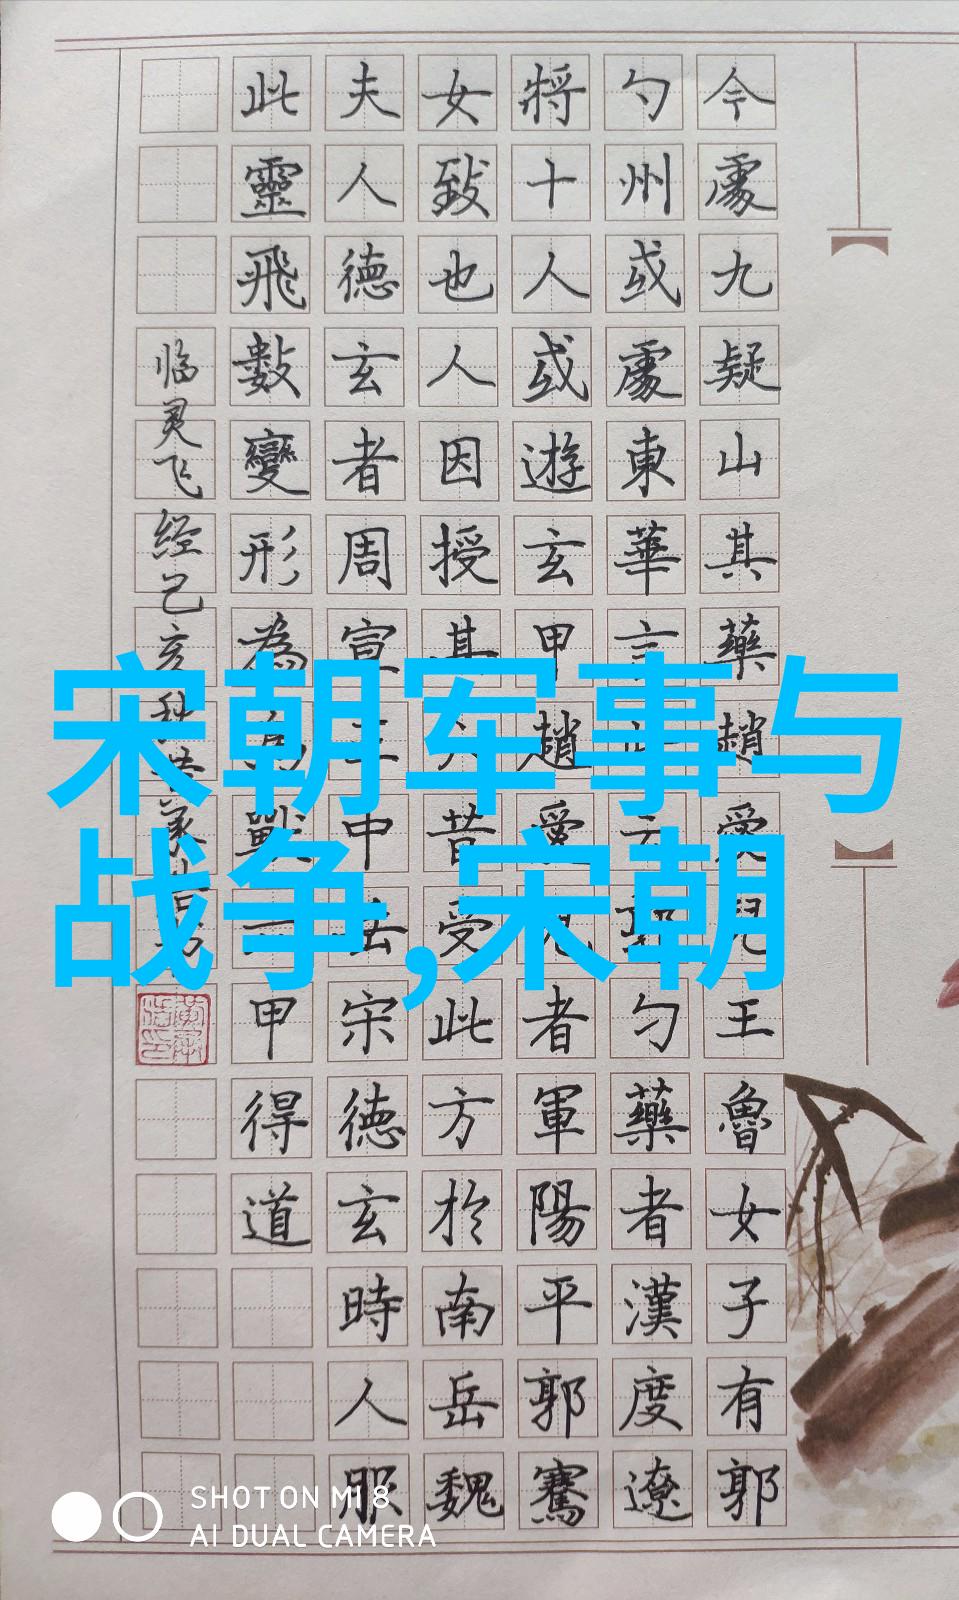 今處九疑山其藥趙愛兒王魯女子有郭
勺州或處東華言此云郭勺藥者漢度遼
將十人或遊玄甲趙愛兒者軍陽平郭騫
女致也人因授其六昔受此方於南岳魏
夫人德玄者周宣王中去宋德玄時人服
此靈飛數變形為鳥獸一甲得道
临灵飞经己亥秋
宋朝军事与
战争,宋朝
SHOT ON MI 8
AI DUAL CAMERA